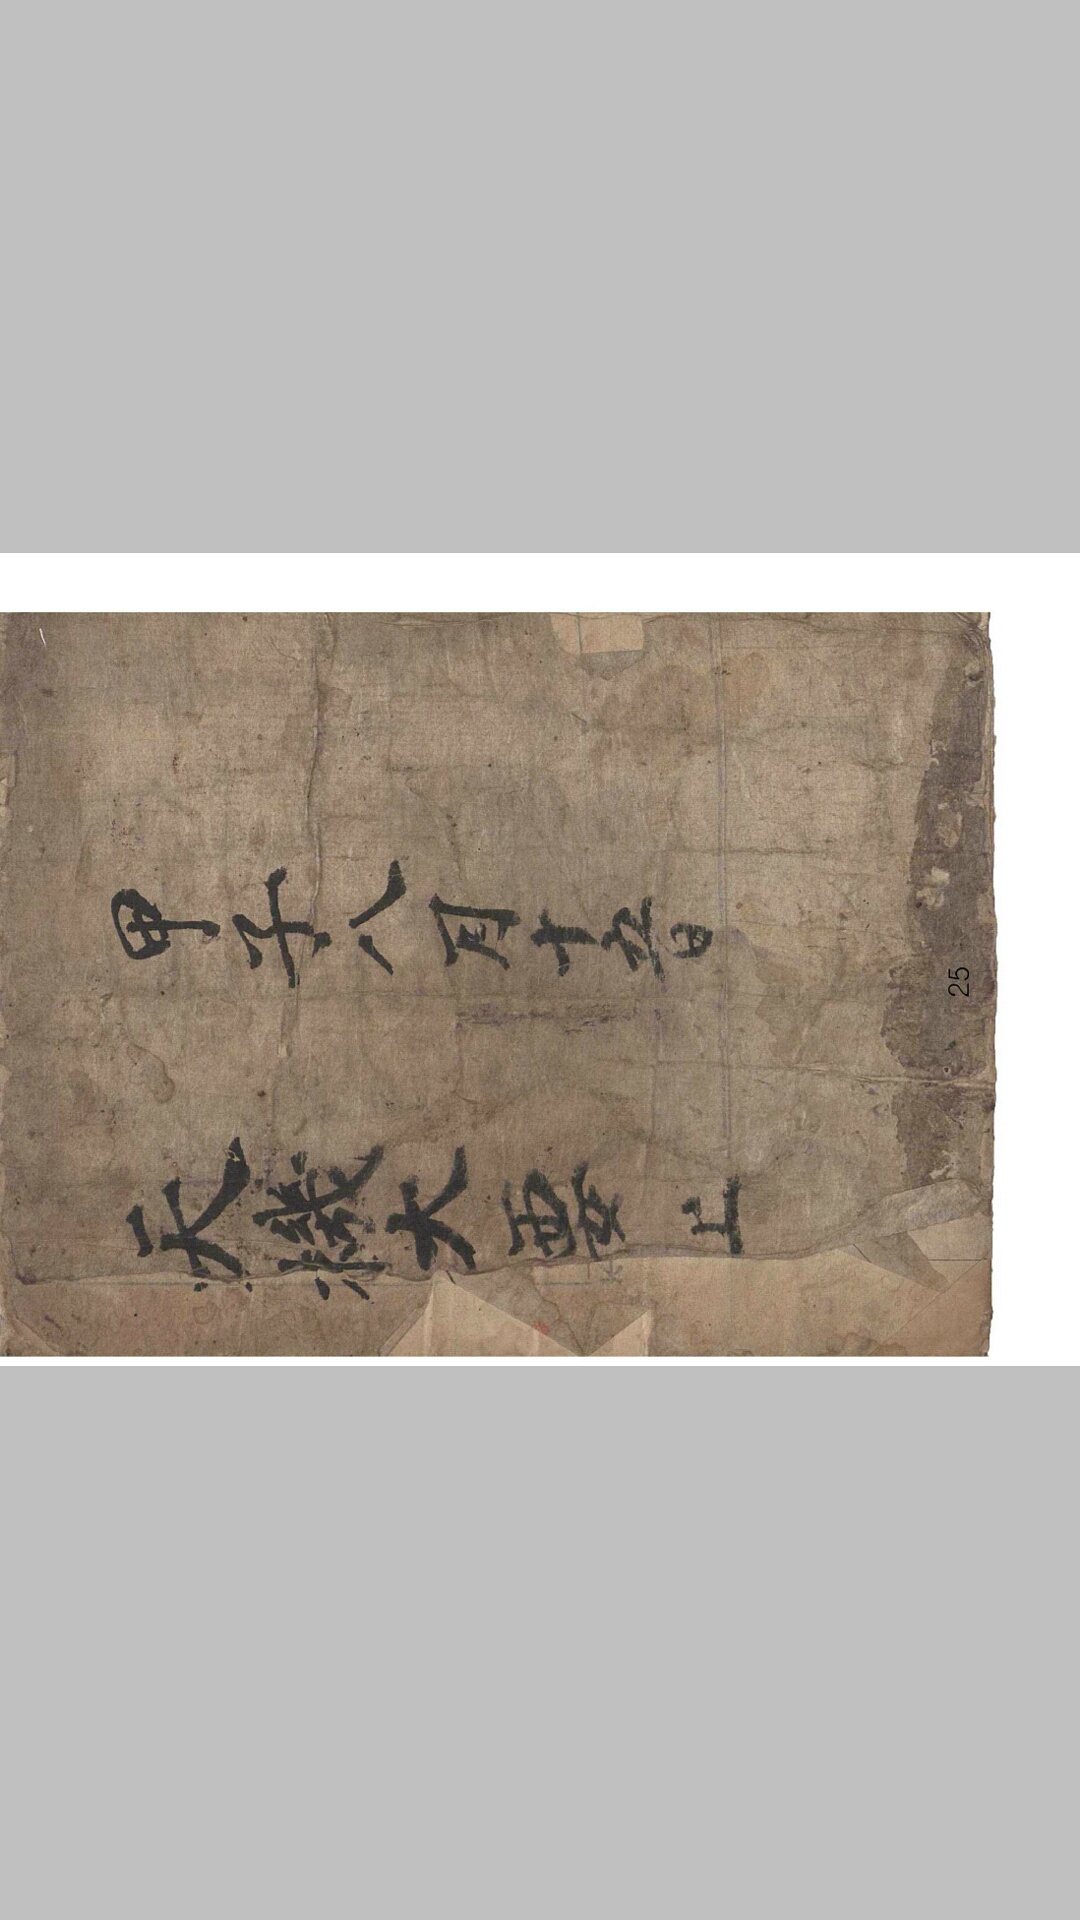 甲子八月十五日
天機大要 上
25